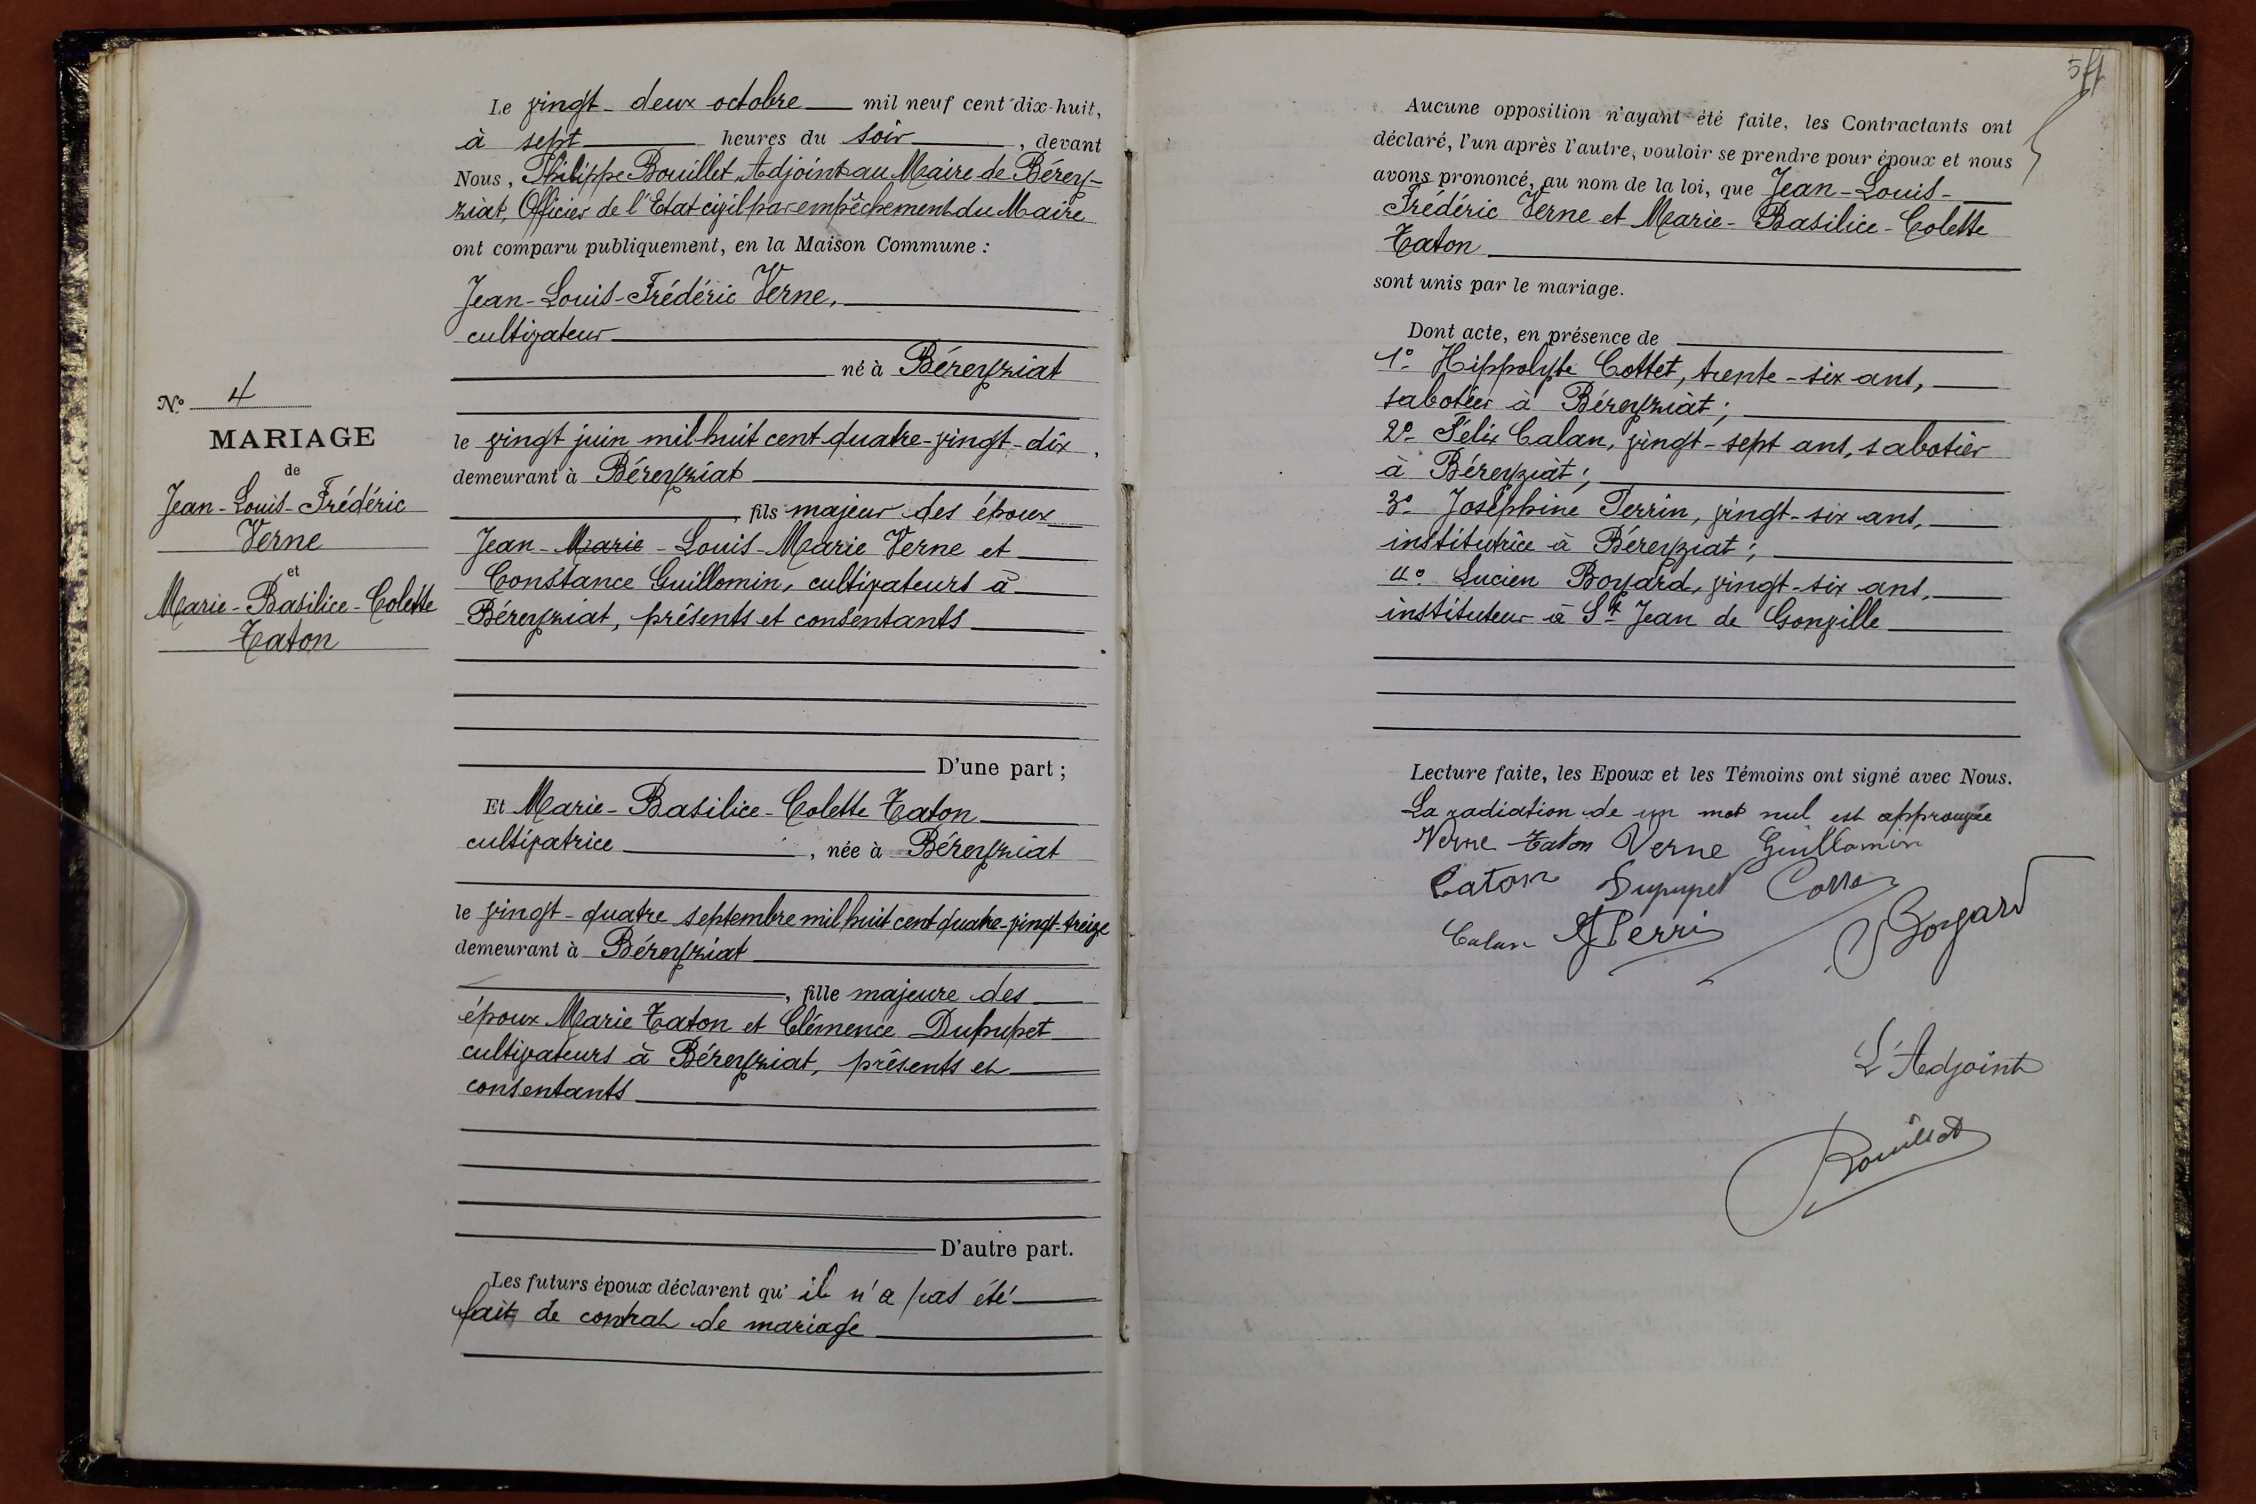 Le vingt-deux octobre mil neuf cent dix-huit,
à sept heures du soir, devant
Nous, Philippe Bouillet, Adjoint au Maire de Bérey-
ziat, Officier de l'Etat civil par empêchement du Maire
ont comparu publiquement, en la Maison Commune :
Jean-Louis-Frédéric Verne,
cultivateur
né à Béreyziat
le vingt juin mil huit cent quatre-vingt-dix,
demeurant à Béreyziat
, fils majeur des époux
Jean-Marie-Louis-Marie Verne et
Constance Guillomin, cultivateurs à
Béreyziat, présents et consentants
D'une part ;
Et Marie-Basilice-Colette Taton
cultivatrice, née à Béreyziat
le vingt-quatre septembre mil huit cent quatre-vingt-treize
demeurant à Béreyziat
, fille majeure des
époux Marie Taton et Clémence Dupupet
cultivateurs à Béreyziat, présents et
consentants
D'autre part.
Les futurs époux déclarent qu'il n'a pas été
fait de contrat de mariage
No 4
MARIAGE
de
Jean-Louis-Frédéric
Verne
et
Marie-Basilice-Colette
Taton
Aucune opposition n'ayant été faite, les Contractants ont
déclaré, l'un après l'autre, vouloir se prendre pour époux et nous
avons prononcé, au nom de la loi, que Jean-Louis-
Frédéric Verne et Marie-Basilice-Colette
Taton
sont unis par le mariage.
Dont acte, en présence de
1o Hippolyte Cottet, trente-six ans,
sabotier à Béreyziat ;
2o Félix Calan, vingt-sept ans, sabotier
à Béreyziat ;
3o Joséphine Perrin, vingt-six ans,
institutrice à Béreyziat ;
4o Lucien Boyard, vingt-six ans,
instituteur à St Jean de Gonville
Lecture faite, les Epoux et les Témoins ont signé avec Nous.
La radiation de un mot nul est approuvée
Verne Taton Verne Guillomin
Taton Dupupet
Calan J Perrin Boyard
L'Adjoint
Bouillet